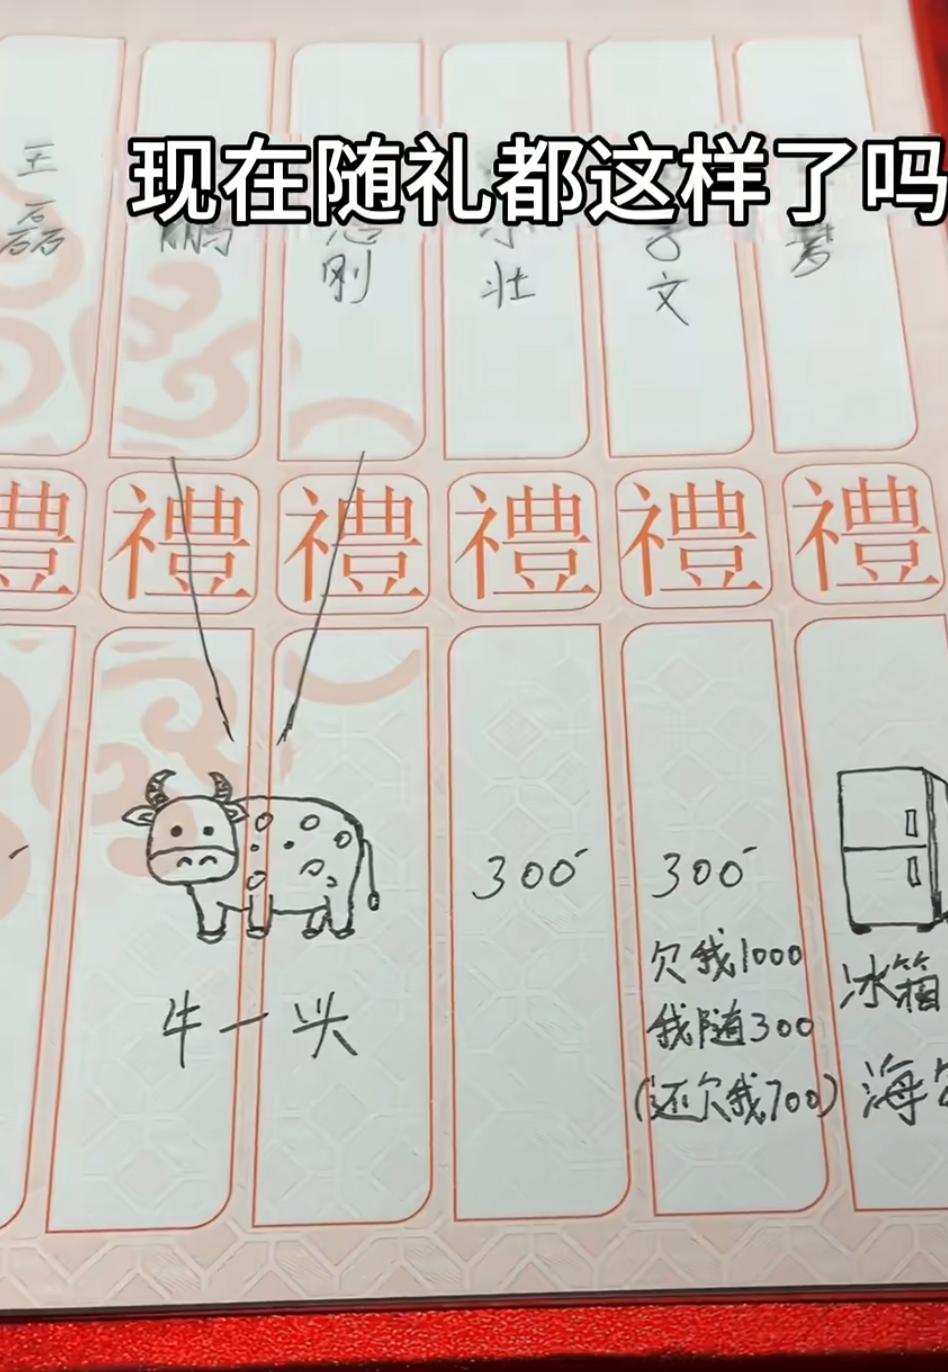 现在随礼都这样了吗
王磊
鹏
刚
壮
文
梦
禮 禮 禮 禮 禮 禮
牛一头
300
300
欠我1000
我随300
(还欠我700)
冰箱
海